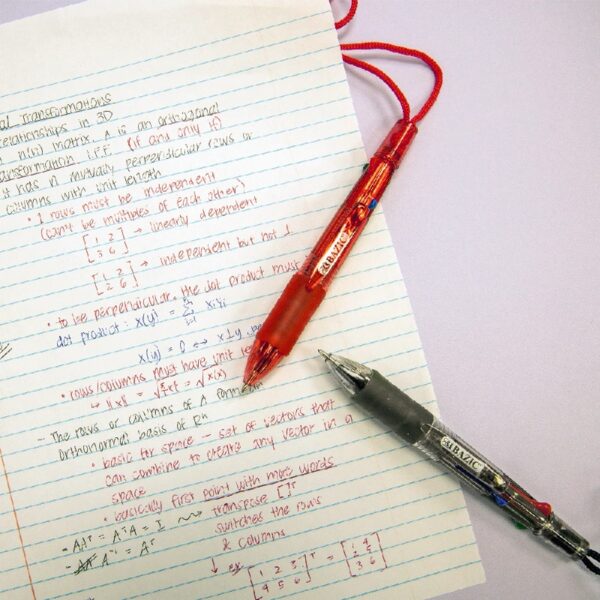 al Transformations
relationships in 3D
n(n) matrix, A is an orthogonal
ransformation iff (if and only if)
it has n mutually perpendicular rows or
columns with unit length
• ⊥ rows must be independent
(can't be multiples of each other)
[1 2
3 6] → linearly dependent
[1 2
2 6] → independent but not ⊥
• to be perpendicular, the dot product must
dot product: x(y) = Σ xᵢyᵢ
x(y) = 0 ↔ x⊥y
• rows/columns must have unit le
↳ ||x|| = √xᵀx = √x(x)
- The rows or columns of A form an
orthonormal basis of Rⁿ
• basis for space – set of vectors that
can combine to create any vector in a
space
• basically first point with more words
- AAᵀ = AᵀA = I ⇝ transpose [ ]ᵀ
- A⁻¹ = Aᵀ switches the rows
& columns
↓ ex [1 2 3
4 5 6]ᵀ = [1 4
2 5
3 6]
BAZIC
BAZIC